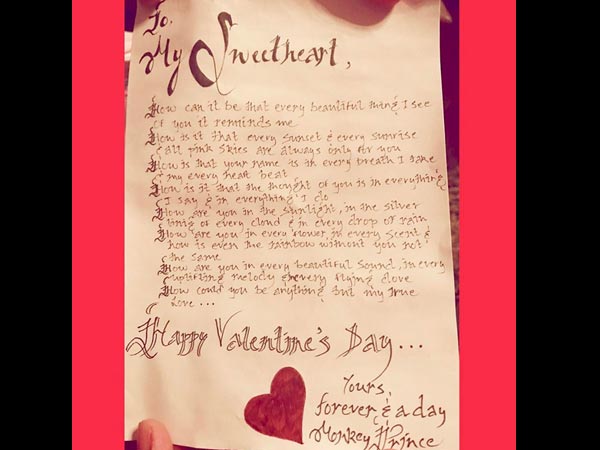 To,
My Sweetheart,
How can it be that every beautiful thing I see
of you it reminds me
How is it that every sunset & every sunrise
& all pink skies are always only for you
How is that your name is in every breath I take
& my every heart beat
How is it that the thought of you is in everything
I say & in everything I do
How are you in the sunlight, in the silver
lining of every cloud & in every drop of rain
How are you in every flower, in every scent &
how is even the rainbow without you not
the same
How are you in every beautiful sound, in every
uplifting melody & every flying dove
How could you be anything but my true
love ...
Happy Valentine's Day...
Yours,
forever & a day
Monkey Prince